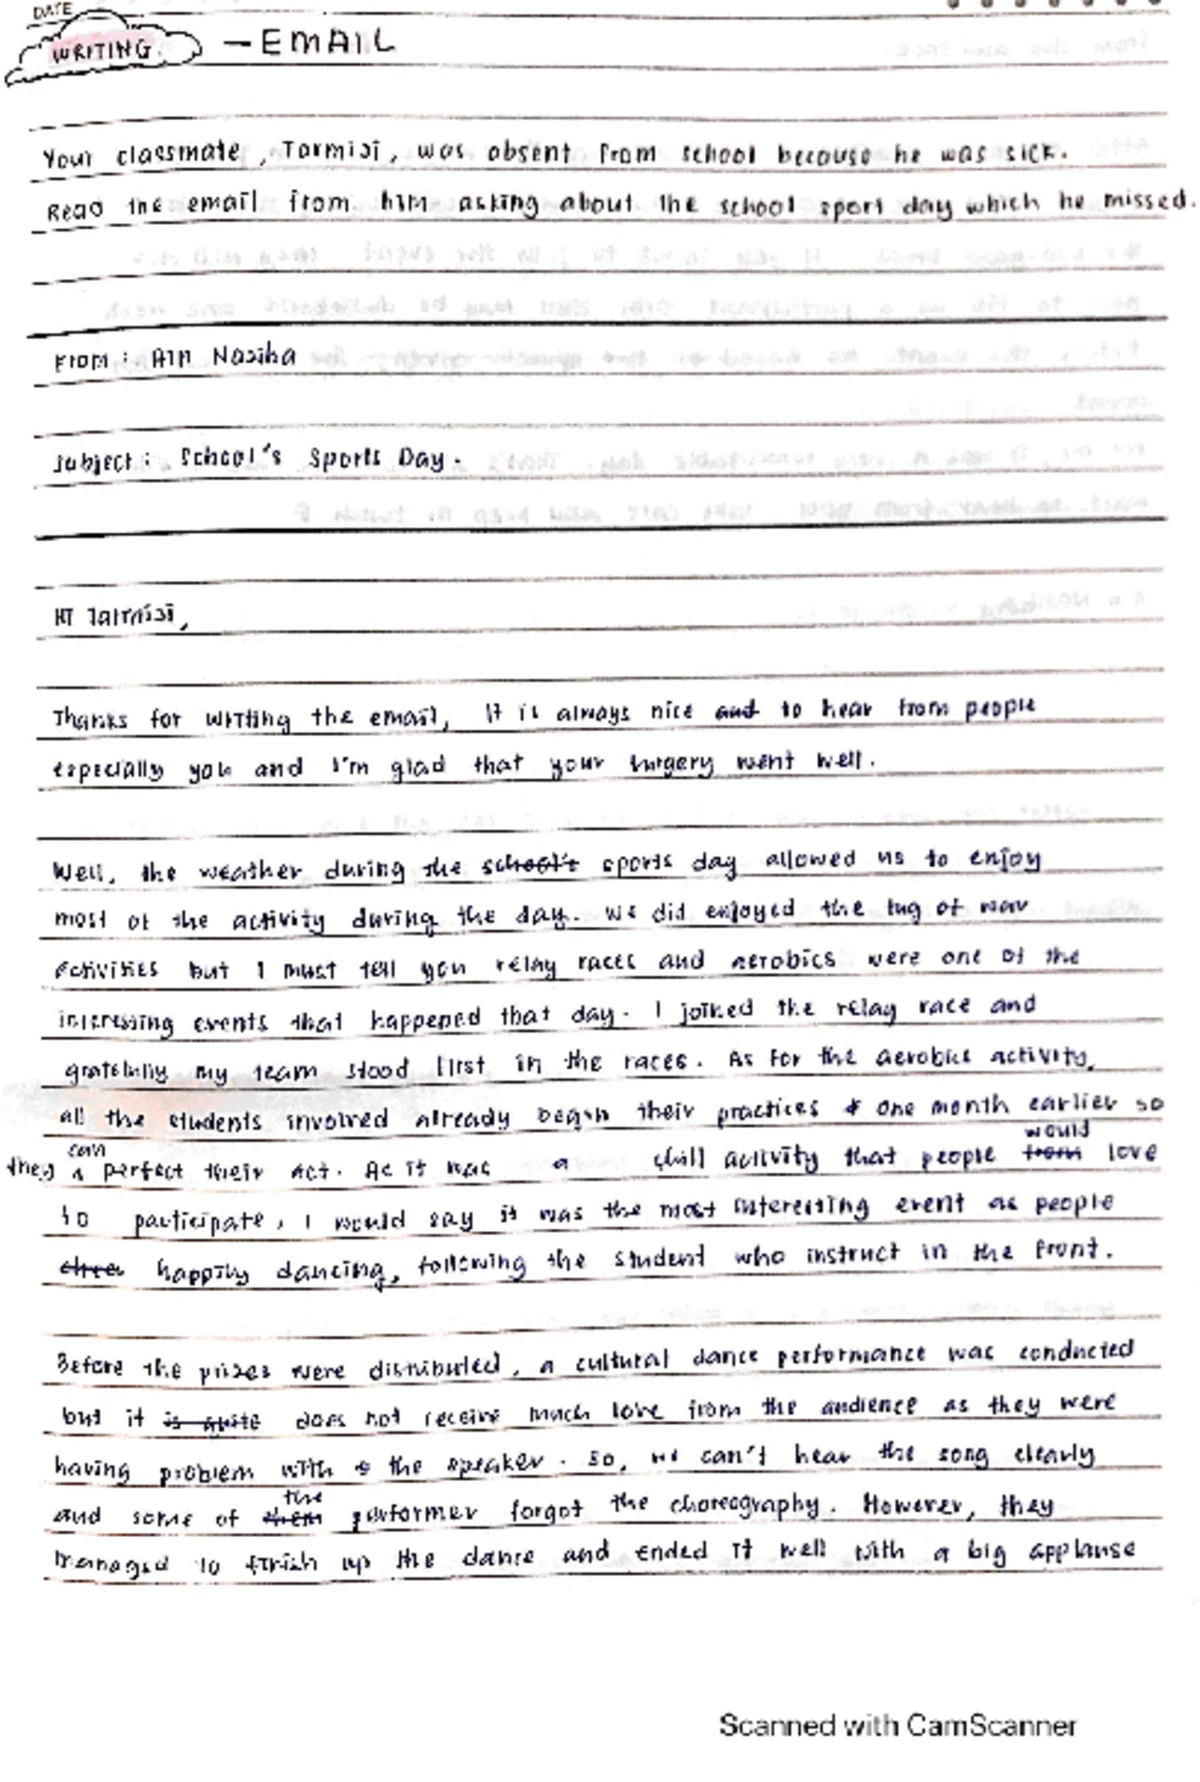 DATE
WRITING - EMAIL
Your classmate, Tarmizi, was absent from school because he was sick.
Read the email from him asking about the school sport day which he missed.
From : Ain Naziha
Subject : School's Sports Day.
Hi Tarmizi,
Thanks for writing the email, It is always nice and to hear from people
especially you and I'm glad that your surgery went well.
Well, the weather during the school's sports day allowed us to enjoy
most of the activity during the day. We did enjoyed the tug of war
activities but I must tell you relay races and aerobics were one of the
interesting events that happened that day. I joined the relay race and
gratefully my team stood first in the races. As for the aerobic activity,
all the students involved already began their practices one month earlier so
they can perfect their act. As it was a chill activity that people from would love
to participate, I would say it was the most interesting event as people
happily dancing, following the student who instruct in the front.
Before the prizes were distributed, a cultural dance performance was conducted
but it is quite does not receive much love from the audience as they were
having problem with the speaker. So, we can't hear the song clearly
and some of them the performer forgot the choreography. However, they
managed to finish up the dance and ended it well with a big applause
Scanned with CamScanner